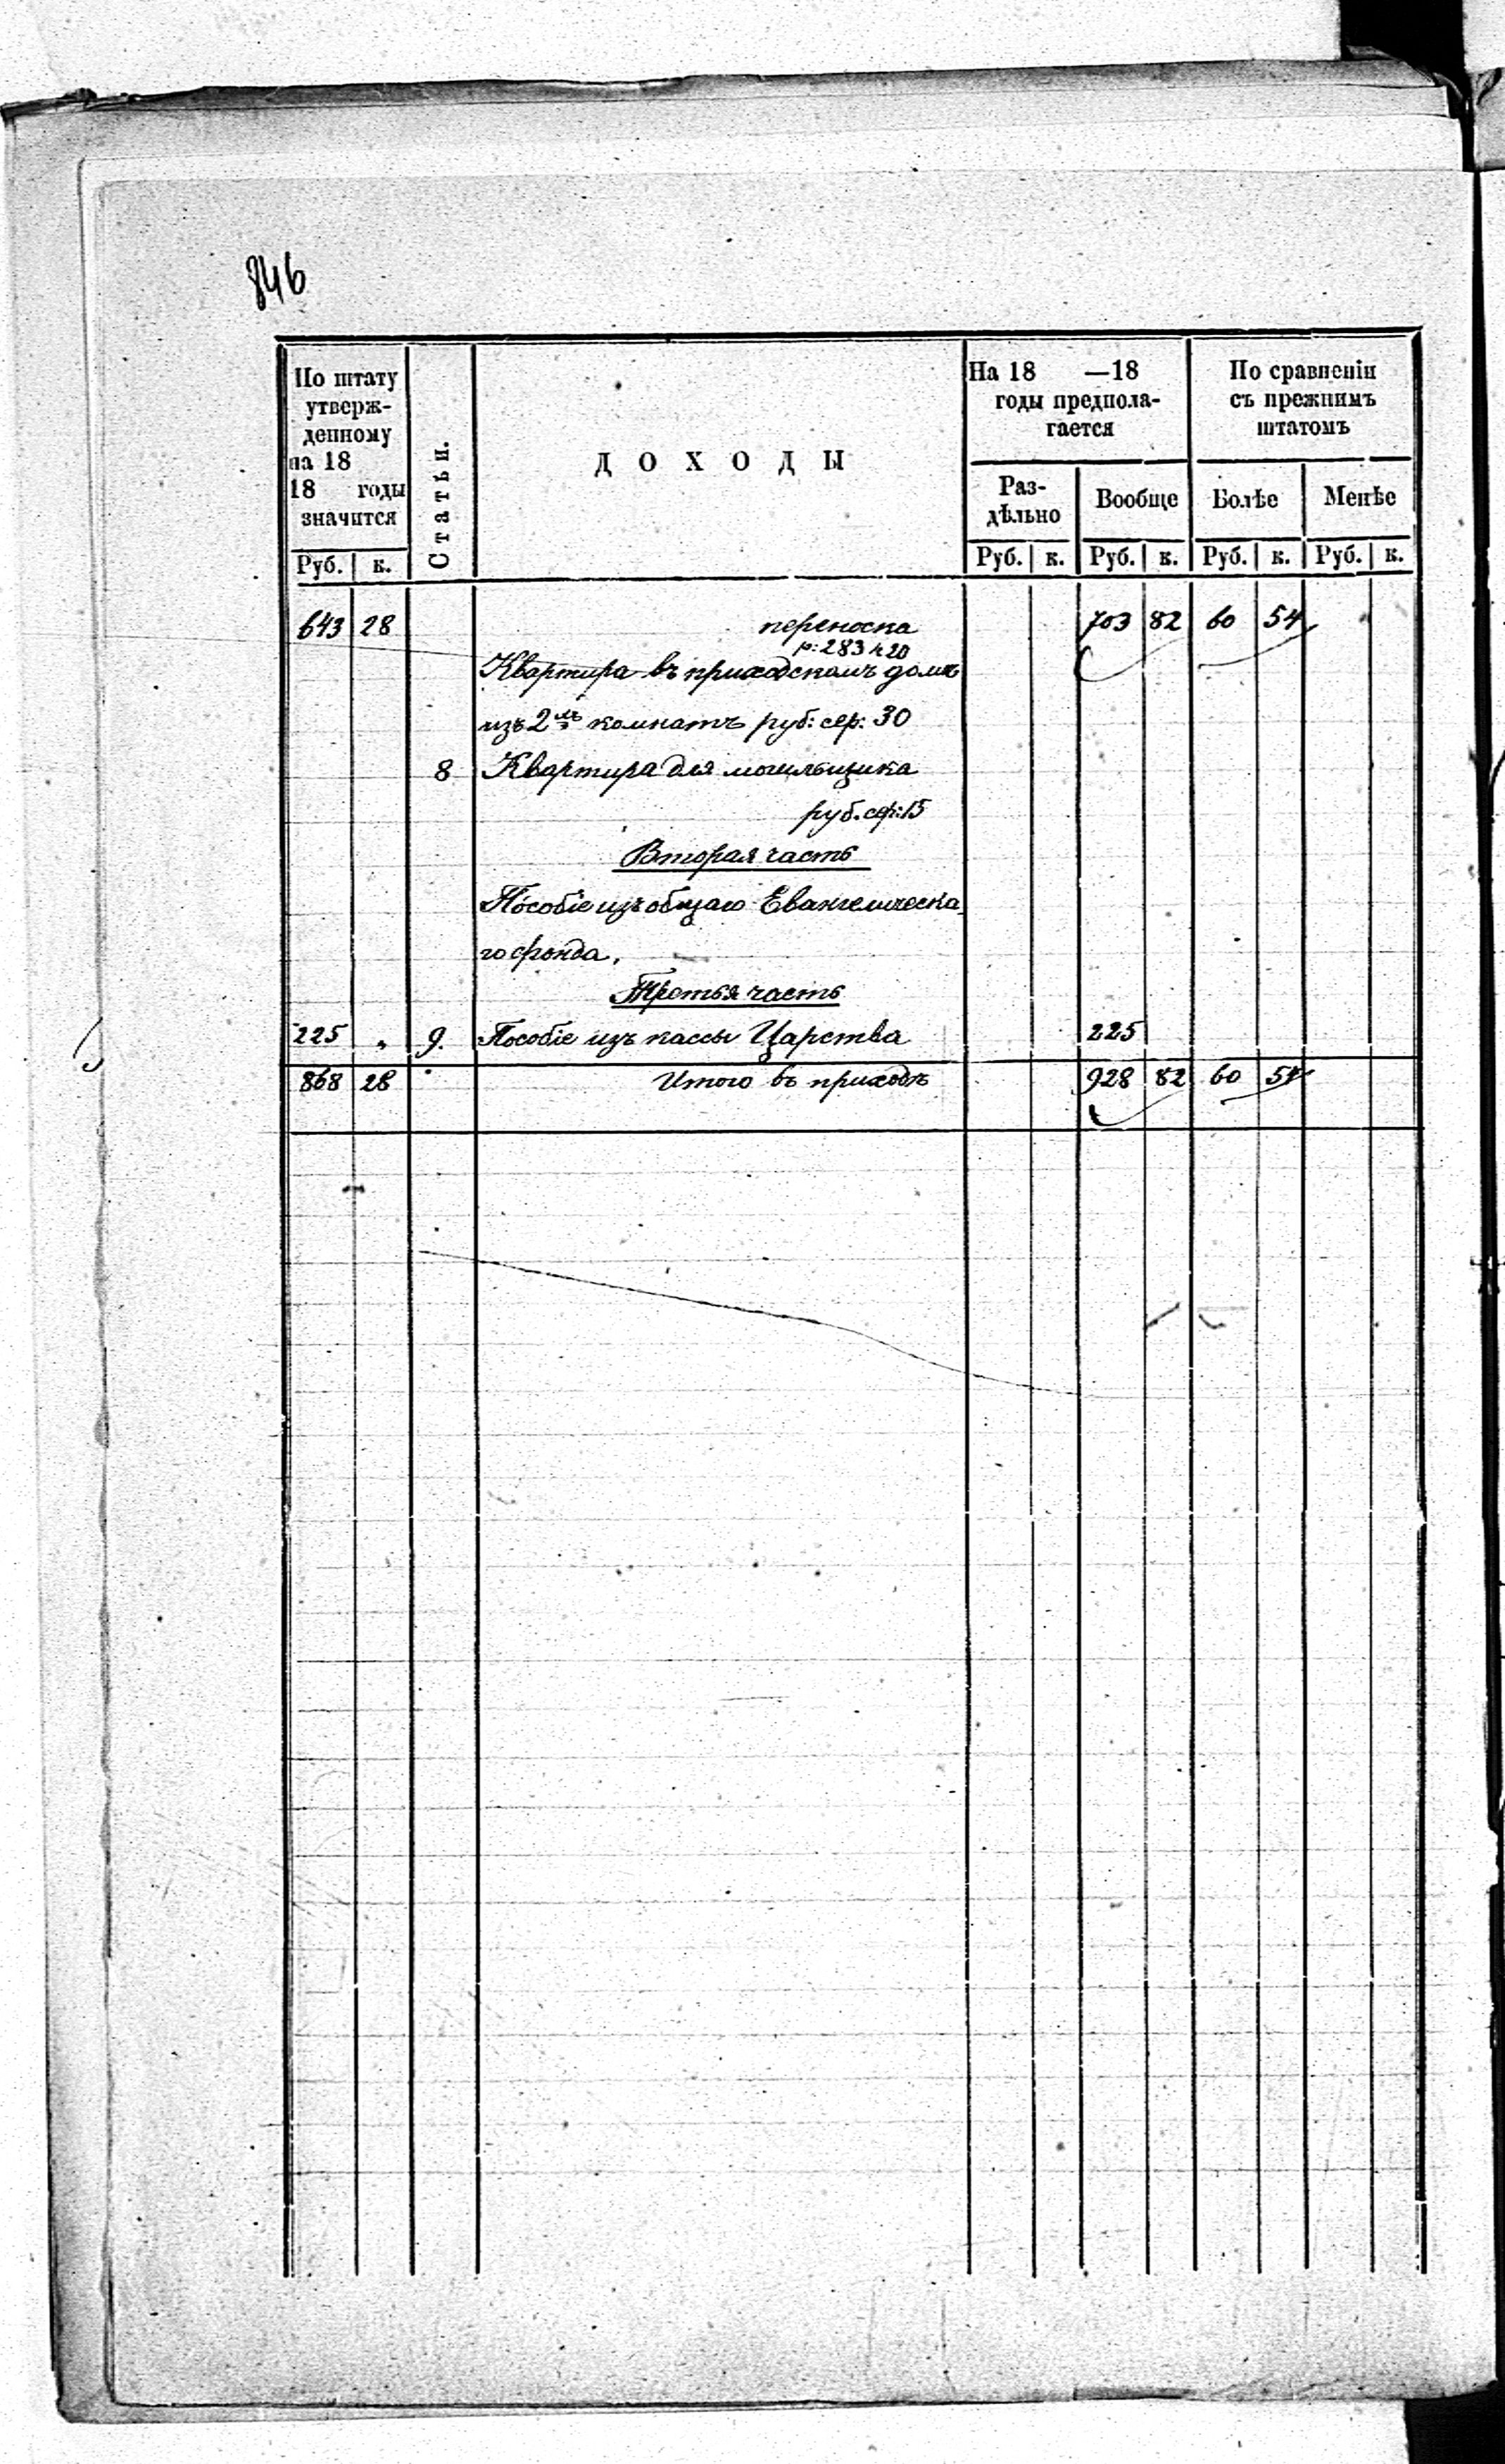 846
По штату утверж-денному на 18 18 годы значится
Статьи.
ДОХОДЫ
На 18 —18 годы предпола-гается
По сравненію съ прежнимъ штатомъ
Раз-дѣльно Вообще Болѣе Менѣе
Руб. к. Руб. к. Руб. к. Руб. к. Руб. к.
643 28 переноска 703 82 60 54
р: 283 к 20
Квартира въ приходскомъ домѣ
изъ 2хъ комнатъ руб: сер: 30
8 Квартира для могильщика
руб. сер: 15
Вторая часть
Пособіе изъ общаго Евангелическа
го фонда.
Третья часть
225 „ 9. Пособіе изъ кассы Царства 225
868 28 Итого въ приходѣ 928 82 60 54